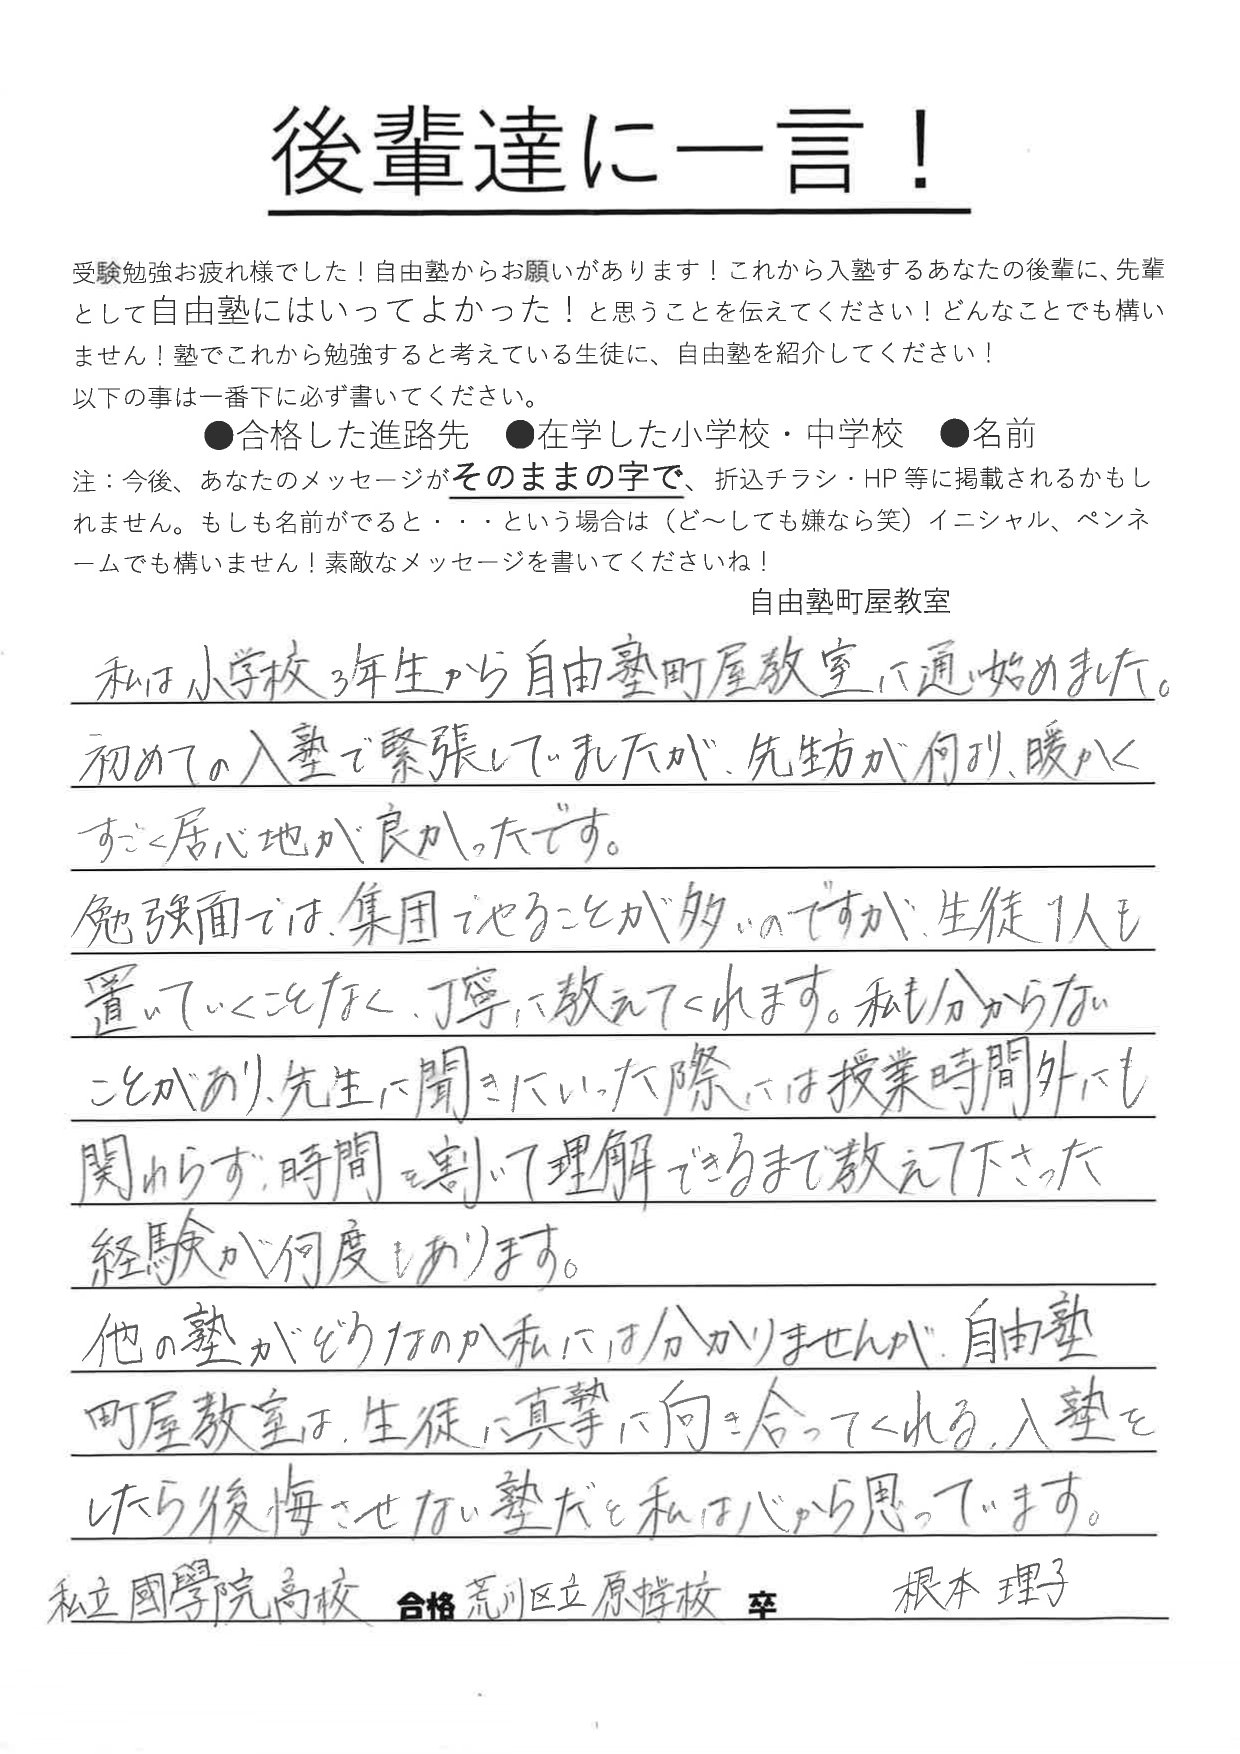 後輩達に一言！
受験勉強お疲れ様でした！自由塾からお願いがあります！これから入塾するあなたの後輩に、先輩
として自由塾にはいってよかった！と思うことを伝えてください！どんなことでも構い
ません！塾でこれから勉強すると考えている生徒に、自由塾を紹介してください！
以下の事は一番下に必ず書いてください。
●合格した進路先　●在学した小学校・中学校　●名前
注：今後、あなたのメッセージがそのままの字で、折込チラシ・HP 等に掲載されるかもし
れません。もしも名前がでると・・・という場合は（ど～しても嫌なら笑）イニシャル、ペンネ
ームでも構いません！素敵なメッセージを書いてくださいね！
自由塾町屋教室
私は小学校3年生から自由塾町屋教室に通い始めました。
初めての入塾で緊張していましたが、先生方が何より、暖かく
すごく居心地が良かったです。
勉強面では、集団でやることが多いのですが、生徒1人も
置いていくことなく、丁寧に教えてくれます。私も分からない
ことがあり、先生に聞きにいった際には授業時間外にも
関わらず、時間を割いて理解できるまで教えて下さった
経験が何度もあります。
他の塾がどうなのか私には分かりませんが、自由塾
町屋教室は、生徒に真摯に向き合ってくれる、入塾を
したら後悔させない塾だと私は心から思っています。
私立國學院高校 合格 荒川区立原中学校 卒 根本 理子